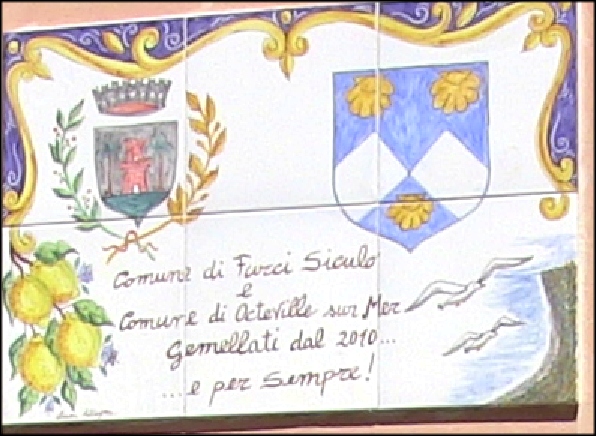 Comune di Furci Siculo
e
Comune di Octeville sur Mer
Gemellati dal 2010...
...e per sempre!